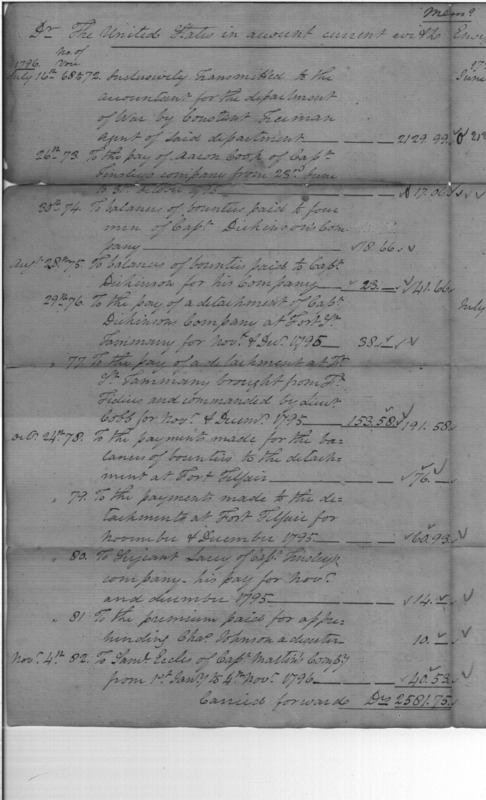 Memo.
Dr The United States in account current with Ensig
No. of
1796. Vou
July 16th 68 to 72. Inclusively Transmitted to the
accountant for the department
of War by Constant Freeman
Agent of said department 2129.99
26th 73. To the pay of Aaron Cook of Capt.
Tinsleys company from 23rd June
to 31st 1795 17.06
30th 74. To balances of bounties paid to four
men of Capt. Dickinson's Com-
pany 18.66
Augt. 28th 75. To balances of bounties paid to Capt.
Dickinson for his Company 23. 41.66
29th 76. To the pay of a detachment of Capt.
Dickinsons Company at Fort St.
Tammany for Novr. & Decr. 1795 38. July
" 77. To the pay of a detachment at Ft.
St. Tammany brought from Ft.
Fidius and commanded by Lieut
Cobb for Novr. & Decemr. 1795 153.58 191.58
Oct. 24th 78. To the payments made for the ba-
lances of bounties to the detach-
ment at Fort Filfair 76.
" 79. To the payments made to the de-
tachments at Fort Filfair for
November & December 1795 60.93
" 80. To Serjeant Lacey of Capt. Tinsleys
company his pay for Novr.
and december 1795 14.
" 81. To the premium paid for appre-
hending Chas. Johnson a deserter 10.
Novr. 4th 82. To Saml. Eccles of Capt. Martins Compy
from 1st Jany. to 4th Novr. 1796 40.53
Carried forward Drs 2581.75